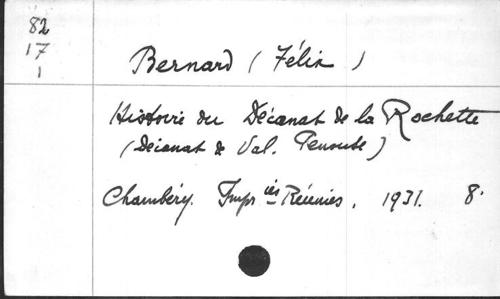 82
17
1
Bernard (Félix)
Histoire du Décanat de la Rochette
(Décanat de Val. Penouse)
Chambéry. Impr ies Réunies, 1931. 8°